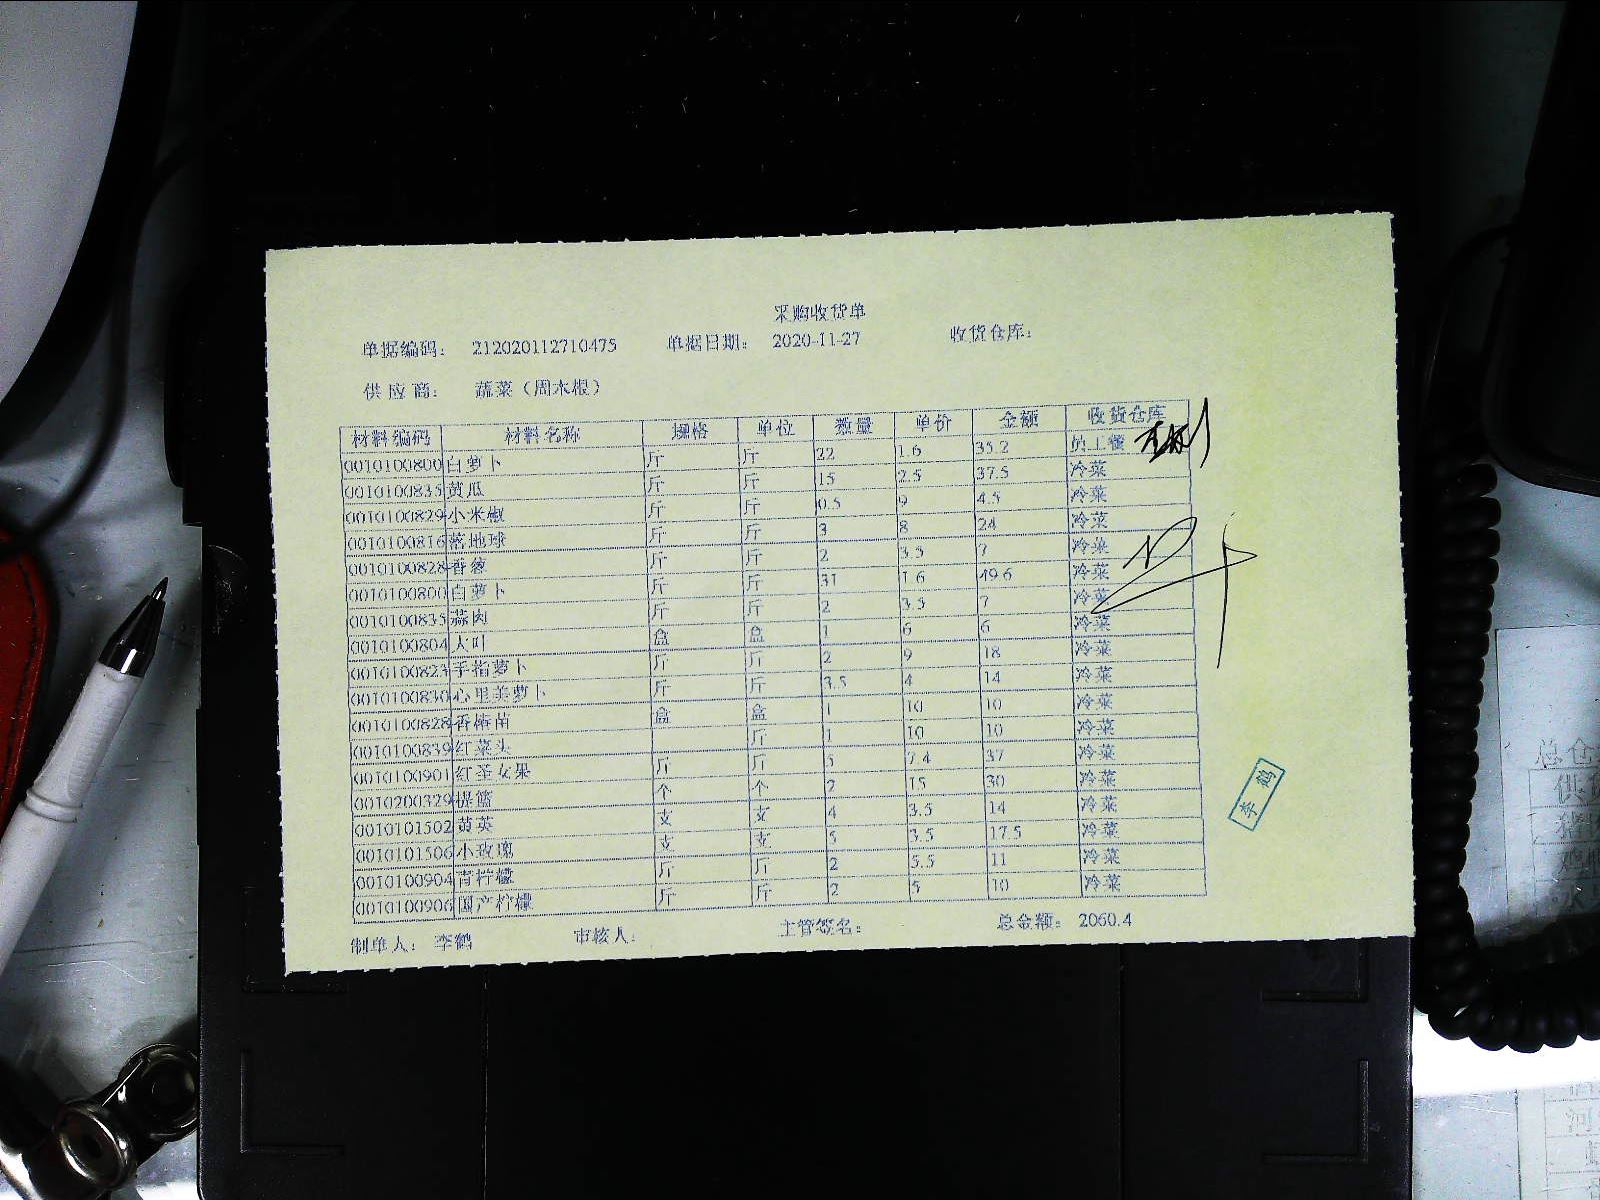 采购收货单
单据编码: 212020112710475 单据日期: 2020-11-27 收货仓库:
供应商: 蔬菜（周木根）
材料编码 材料名称 规格 单位 数量 单价 金额 收货仓库
0010100800 白萝卜 斤 斤 22 1.6 35.2 员工餐
0010100835 黄瓜 斤 斤 15 2.5 37.5 冷菜
0010100829 小米椒 斤 斤 0.5 9 4.5 冷菜
0010100816 落地球 斤 斤 3 8 24 冷菜
0010100828 香葱 斤 斤 2 3.5 7 冷菜
0010100800 白萝卜 斤 斤 31 1.6 49.6 冷菜
0010100835 蒜肉 斤 斤 2 3.5 7 冷菜
0010100804 大叶 盒 盒 1 6 6 冷菜
0010100823 手指萝卜 斤 斤 2 9 18 冷菜
0010100830 心里美萝卜 斤 斤 3.5 4 14 冷菜
0010100828 香椿苗 盒 盒 1 10 10 冷菜
0010100839 红菜头 斤 1 10 10 冷菜
0010100901 红圣女果 斤 斤 5 7.4 37 冷菜
0010200329 提篮 个 个 2 15 30 冷菜
0010101502 黄英 支 支 4 3.5 14 冷菜
0010101506 小玫瑰 支 支 5 3.5 17.5 冷菜
0010100904 青柠檬 斤 斤 2 5.5 11 冷菜
0010100906 国产柠檬 斤 斤 2 5 10 冷菜
制单人: 李鹤 审核人: 主管签名: 总金额: 2060.4
李鹤
总仓